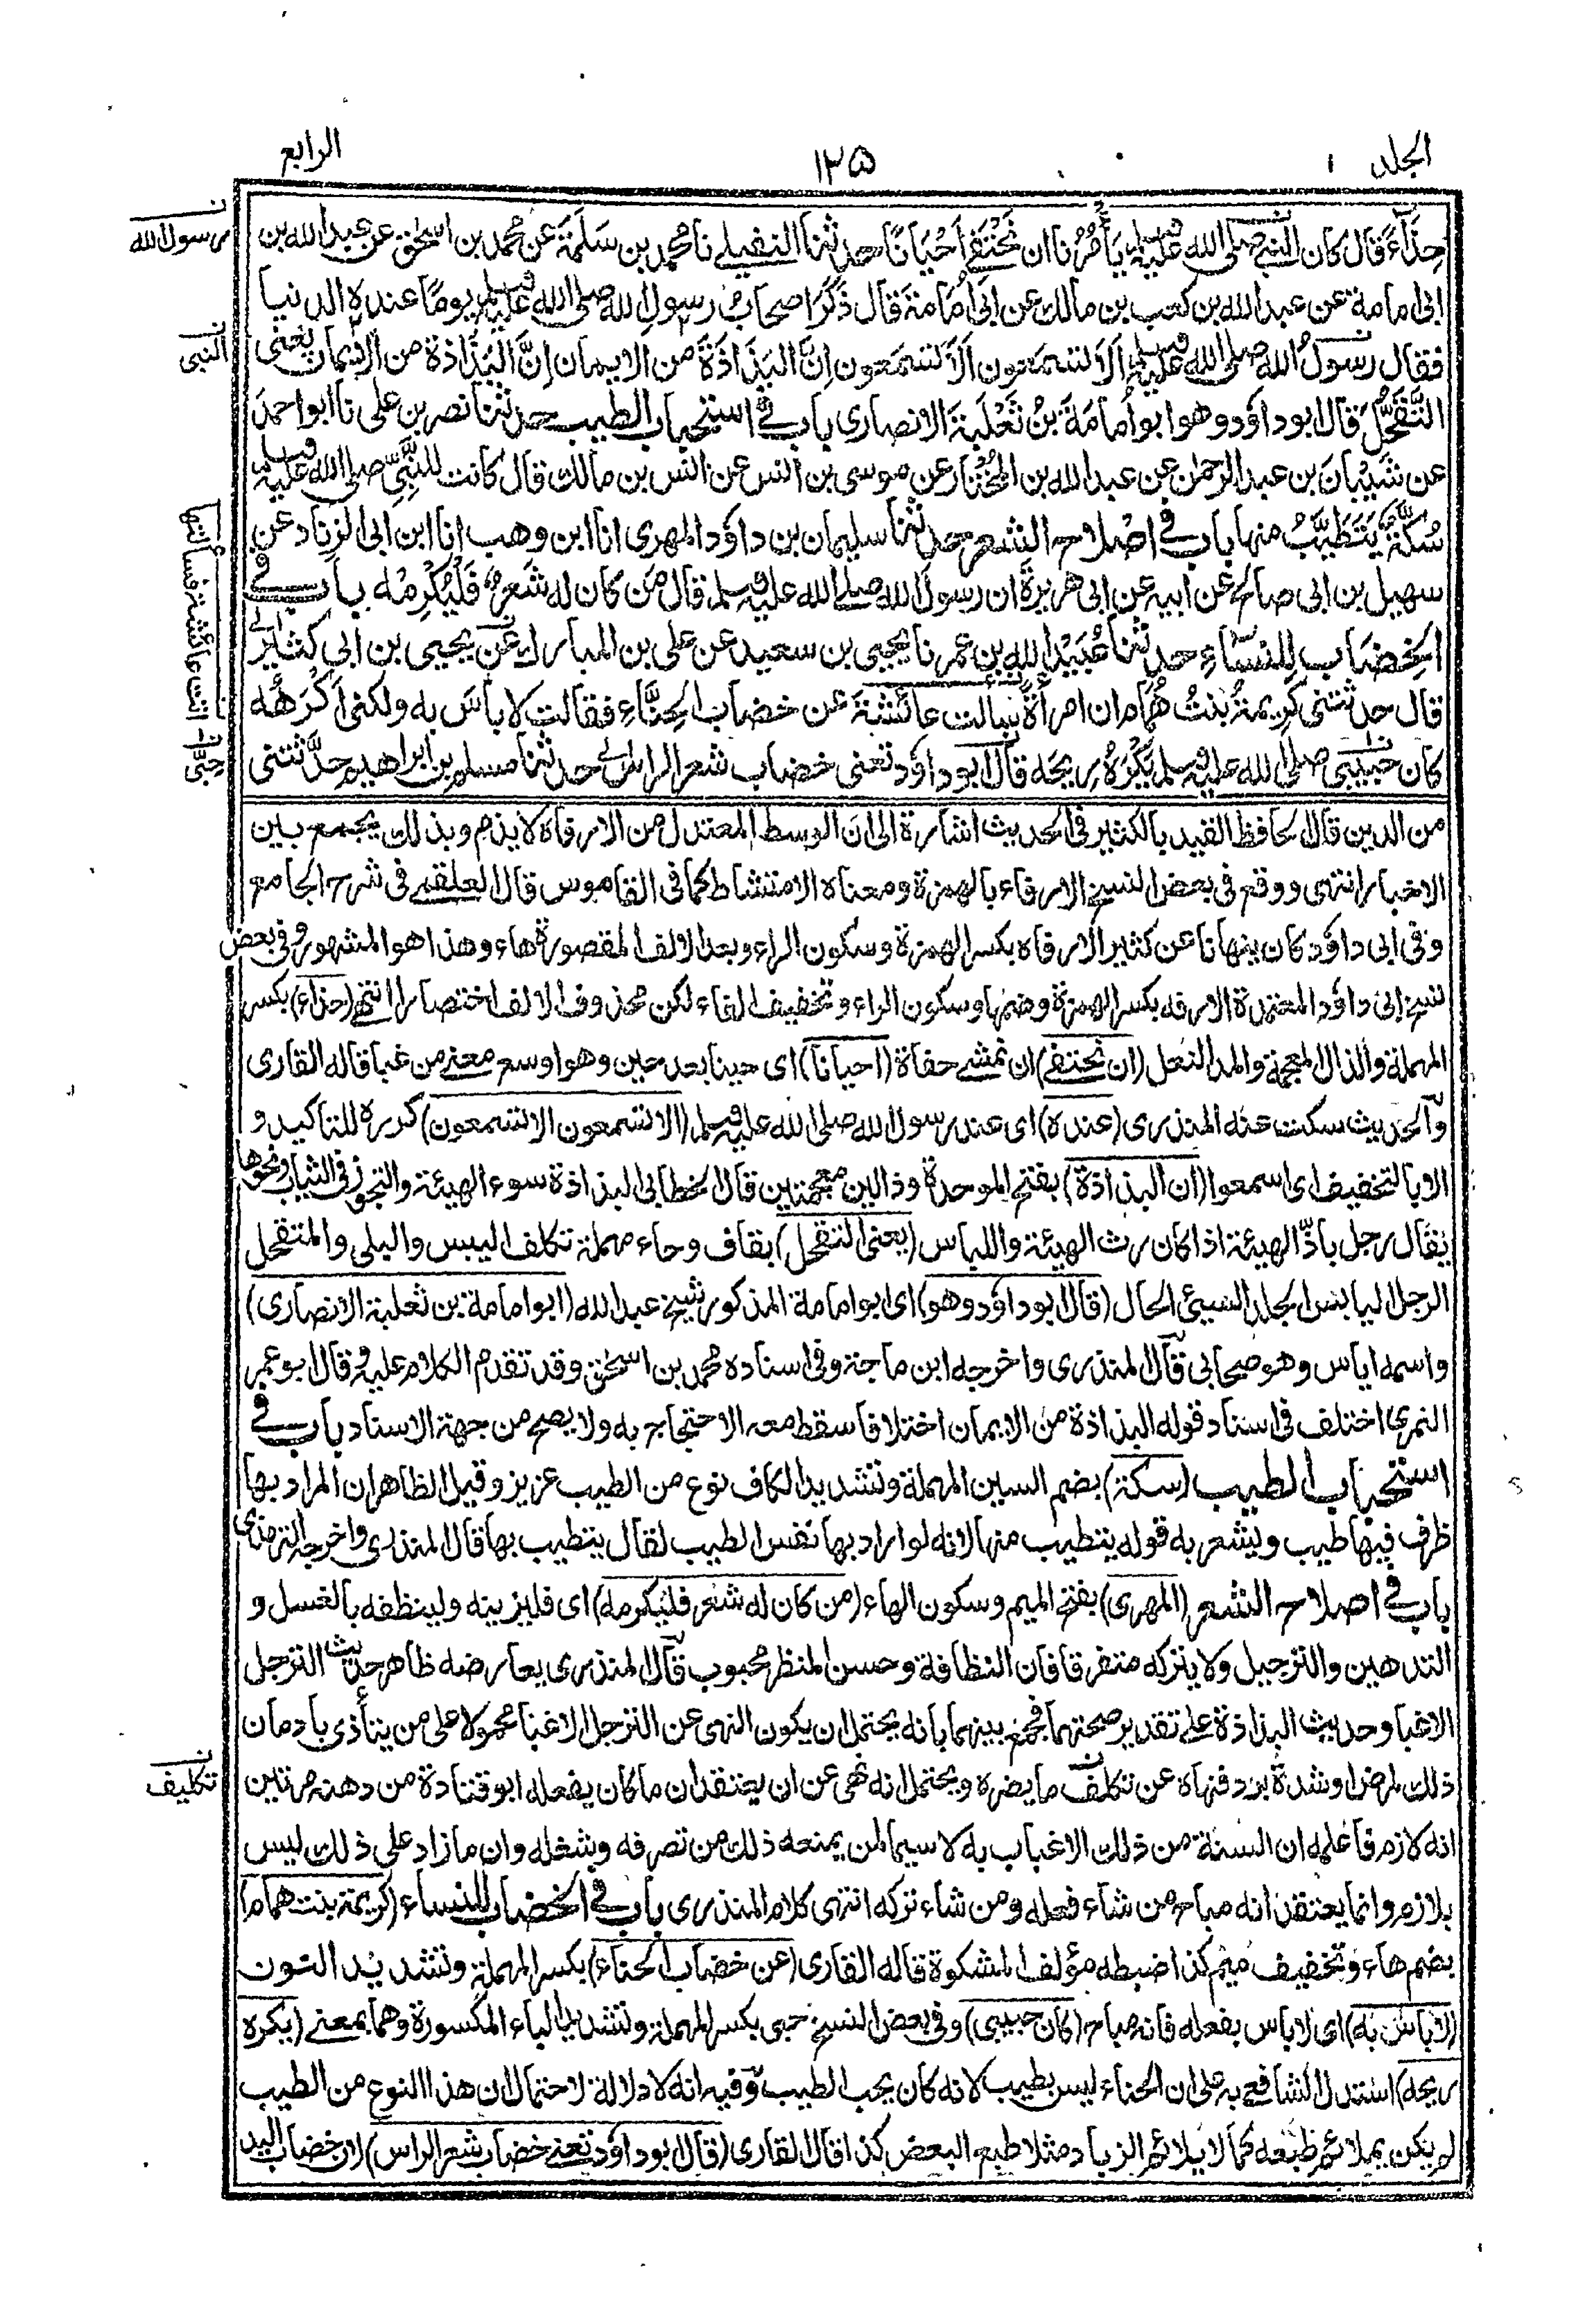 الجلد
١٢٥
الرابع
حِذَاءً قال كان النبي صلى الله عليه وسلم يَأْمُرُنا ان نَحْتَفِيَ اَحْيَانًا حدثنا النفيلي نا محمد بن سَلَمَةَ عن محمد بن اسحٰق عن عبد الله بن
ابى امامة عن عبد الله بن كعب بن مالك عن اَبى اُمَامةَ قال ذَكَرَ اصحابُ رسولِ الله صلى الله عليه وسلم يومًا عنده الدنيا
فقال رسولُ الله صلى الله عليه وسلم اَلَا تسمعون اَلَا تسمعون اِنَّ البَذَاذَةَ من الايمان اِنَّ البَذَاذة من الايمان يعنى
التَّقَحُّلَ قال ابو داؤد وهو ابو اُمامَةَ بنُ ثَعْلَبَةَ الانصارى باب في استحباب الطيب حدثنا نصر بن على نا ابو احمدَ
عن شَيْبَانَ بن عبد الرحمٰن عن عبد الله بن المُخْتار عن موسى بن انس عن انس بن مالك قال كانت للنَّبِيِّ صلى الله عليه وسلم
سُكَّةٌ يَتَطَيَّبُ منها باب في اصْلاح الشعر حدثنا سليمان بن داؤد المهرى انا ابن وهب انا ابن ابى الزِناد عن
سهيل بن ابى صالح عن ابيه عن ابى هريرةَ ان رسولَ الله صلى الله عليه وسلم قال مَن كان له شَعرٌ فَلْيُكْرِمْه باب في
الخِضَاب لِلنِّسَاءِ حدثنا عُبَيْدُ الله بن عمر نا يحيى بن سعيد عن على بن المبارك عن يحيى بن ابى كثير
قال حدثتنى كريمةُ بنتُ هُمَام ان امرأةً سالت عائشةَ عن خضاب الحِنَّاءِ فقالت لا باسَ به ولكنى اَكْرَهُه
كان حَبِيبِى صلى الله عليه وسلم يَكْرَهُ ريحَه قال ابو داؤد تعنى خضاب شعر الراس حدثنا مسلم بن ابراهيم حدَّثتنى
رسول الله
النبى
اتت عائشة فسألتها
حِبّى
من الدين قال الحافظ القيد بالكثير فى الحديث اشارة الى ان الوسط المعتدل من الارفاه لا يذم وبذلك يجمع بين
الاخبار انتهى ووقع فى بعض النسخ الارفاء بالهمزة ومعناه الامتشاط كما فى القاموس قال العلقمى فى شرح الجامع
وفى ابى داؤد كان ينهانا عن كثير الارفاه بكسر الهمزة وسكون الراء وبعد الالف المقصورة هاء وهذا هو المشهور وفى بعض
نسخ ابى داؤد المعتمدة الارفه بكسر الهمزة وضمها وسكون الراء وتخفيف الفاء لكن محذوف الالف اختصارا انتهى (حذاء) بكسر
المهملة والذال المعجمة والمد النعل (ان نحتفى) ان نمشى حفاة (احيانا) اى حينا بعد حين وهو اوسع معنى من غبا قاله القارى
والحديث سكت عنه المنذرى (عنده) اى عند رسول الله صلى الله عليه وسلم (الا تسمعون الا تسمعون) كرره للتاكيد و
الا بالتخفيف اى اسمعوا (ان البذاذة) بفتح الموحدة وذالين معجمتين قال الخطابى البذاذة سوء الهيئة والتجوز فى الثياب ونحوها
يقال رجل باذّ الهيئة اذا كان رث الهيئة واللباس (يعنى التقحل) بقاف وحاء مهملة تكلف اليبس والبلى والمتقحل
الرجل اليابس الجلد السيئ الحال (قال ابو داؤد وهو) اى ابو امامة المذكور شيخ عبد الله (ابو امامة بن ثعلبة الانصارى)
واسمه اياس وهو صحابى قال المنذرى واخرجه ابن ماجة وفى اسناده محمد بن اسحٰق وقد تقدم الكلام عليه وقال ابو عمر
النمرى اختلف فى اسناد قوله البذاذة من الايمان اختلافا سقط معه الاحتجاج به ولا يصح من جهة الاسناد باب في
استحباب الطيب (سكة) بضم السين المهملة وتشديد الكاف نوع من الطيب عزيز وقيل الظاهر ان المراد بها
ظرف فيها طيب ويشعر به قوله يتطيب منها لانه لو اراد بها نفس الطيب لقال يتطيب بها قال المنذرى واخرجه الترمذى
باب في اصلاح الشعر (المهرى) بفتح الميم وسكون الهاء (من كان له شعر فليكرمه) اى فليزينه ولينظفه بالغسل و
التدهين والترجيل ولا يتركه متفرقا فان النظافة وحسن المنظر محبوب قال المنذرى يعارضه ظاهر حديث الترجل
الاغبا وحديث البذاذة على تقدير صحتهما فجمع بينهما بانه يحتمل ان يكون النهى عن الترجل الاغبا محمولا على من يتأذى بادمان
ذلك لمرض او شدة برد فنهاه عن تكلف ما يضره ويحتمل انه نهى عن ان يعتقد ان ما كان يفعله ابو قتادة من دهنه مرتين
تكليف
انه لازم فاعلمه ان السنة من ذلك الاغباب به لا سيما لمن يمنعه ذلك من تصرفه وشغله وان ما زاد على ذلك ليس
بلازم وانما يعتقد انه مباح من شاء فعله ومن شاء تركه انتهى كلام المنذرى باب في الخضاب للنساء (كريمة بنت همام)
بضم هاء وتخفيف ميم كذا ضبطه مؤلف المشكوة قاله القارى (عن خضاب الحناء) بكسر المهملة وتشديد النون
(لا باس به) اى لا باس بفعله فانه مباح (كان حبيبى) وفى بعض النسخ حبى بكسر المهملة وتشديد الباء المكسورة وهما بمعنى (يكره
ريحه) استدل الشافعى به على ان الحناء ليس بطيب لانه كان يحب الطيب وفيه انه لا دلالة لاحتمال ان هذا النوع من الطيب
لم يكن يلائم طبعه كما لا يلائم الزباد مثلا طبع البعض كذا قال القارى (قال ابو داؤد تعنى خضاب شعر الراس) لان خضاب اليد